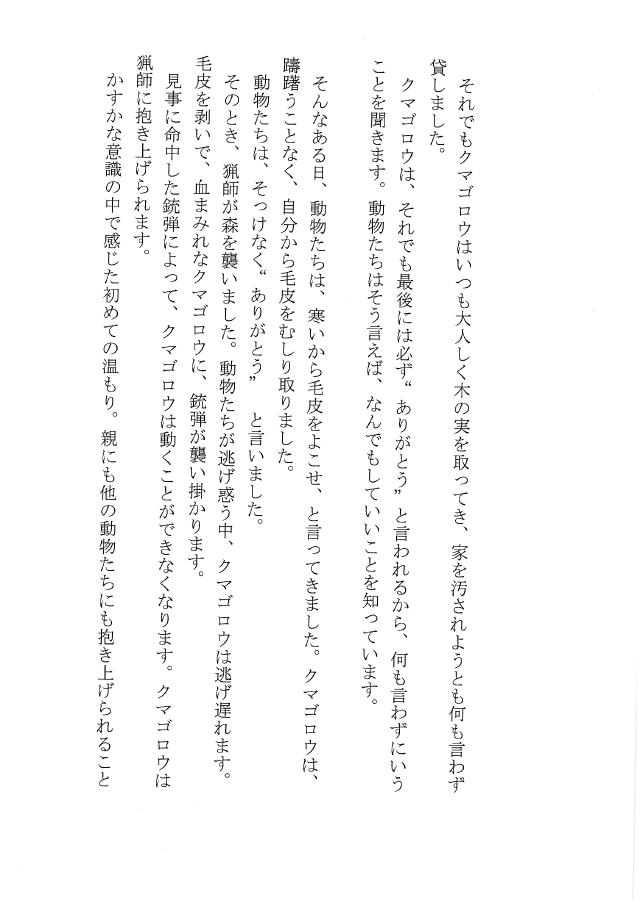 それでもクマゴロウはいつも大人しく木の実を取ってき、家を汚されようとも何も言わず
貸しました。
クマゴロウは、それでも最後には必ず“ありがとう”と言われるから、何も言わずにいう
ことを聞きます。動物たちはそう言えば、なんでもしていいことを知っています。
そんなある日、動物たちは、寒いから毛皮をよこせ、と言ってきました。クマゴロウは、
躊躇うことなく、自分から毛皮をむしり取りました。
動物たちは、そっけなく“ありがとう” と言いました。
そのとき、猟師が森を襲いました。動物たちが逃げ惑う中、クマゴロウは逃げ遅れます。
毛皮を剥いで、血まみれなクマゴロウに、銃弾が襲い掛かります。
見事に命中した銃弾によって、クマゴロウは動くことができなくなります。クマゴロウは
猟師に抱き上げられます。
かすかな意識の中で感じた初めての温もり。親にも他の動物たちにも抱き上げられること